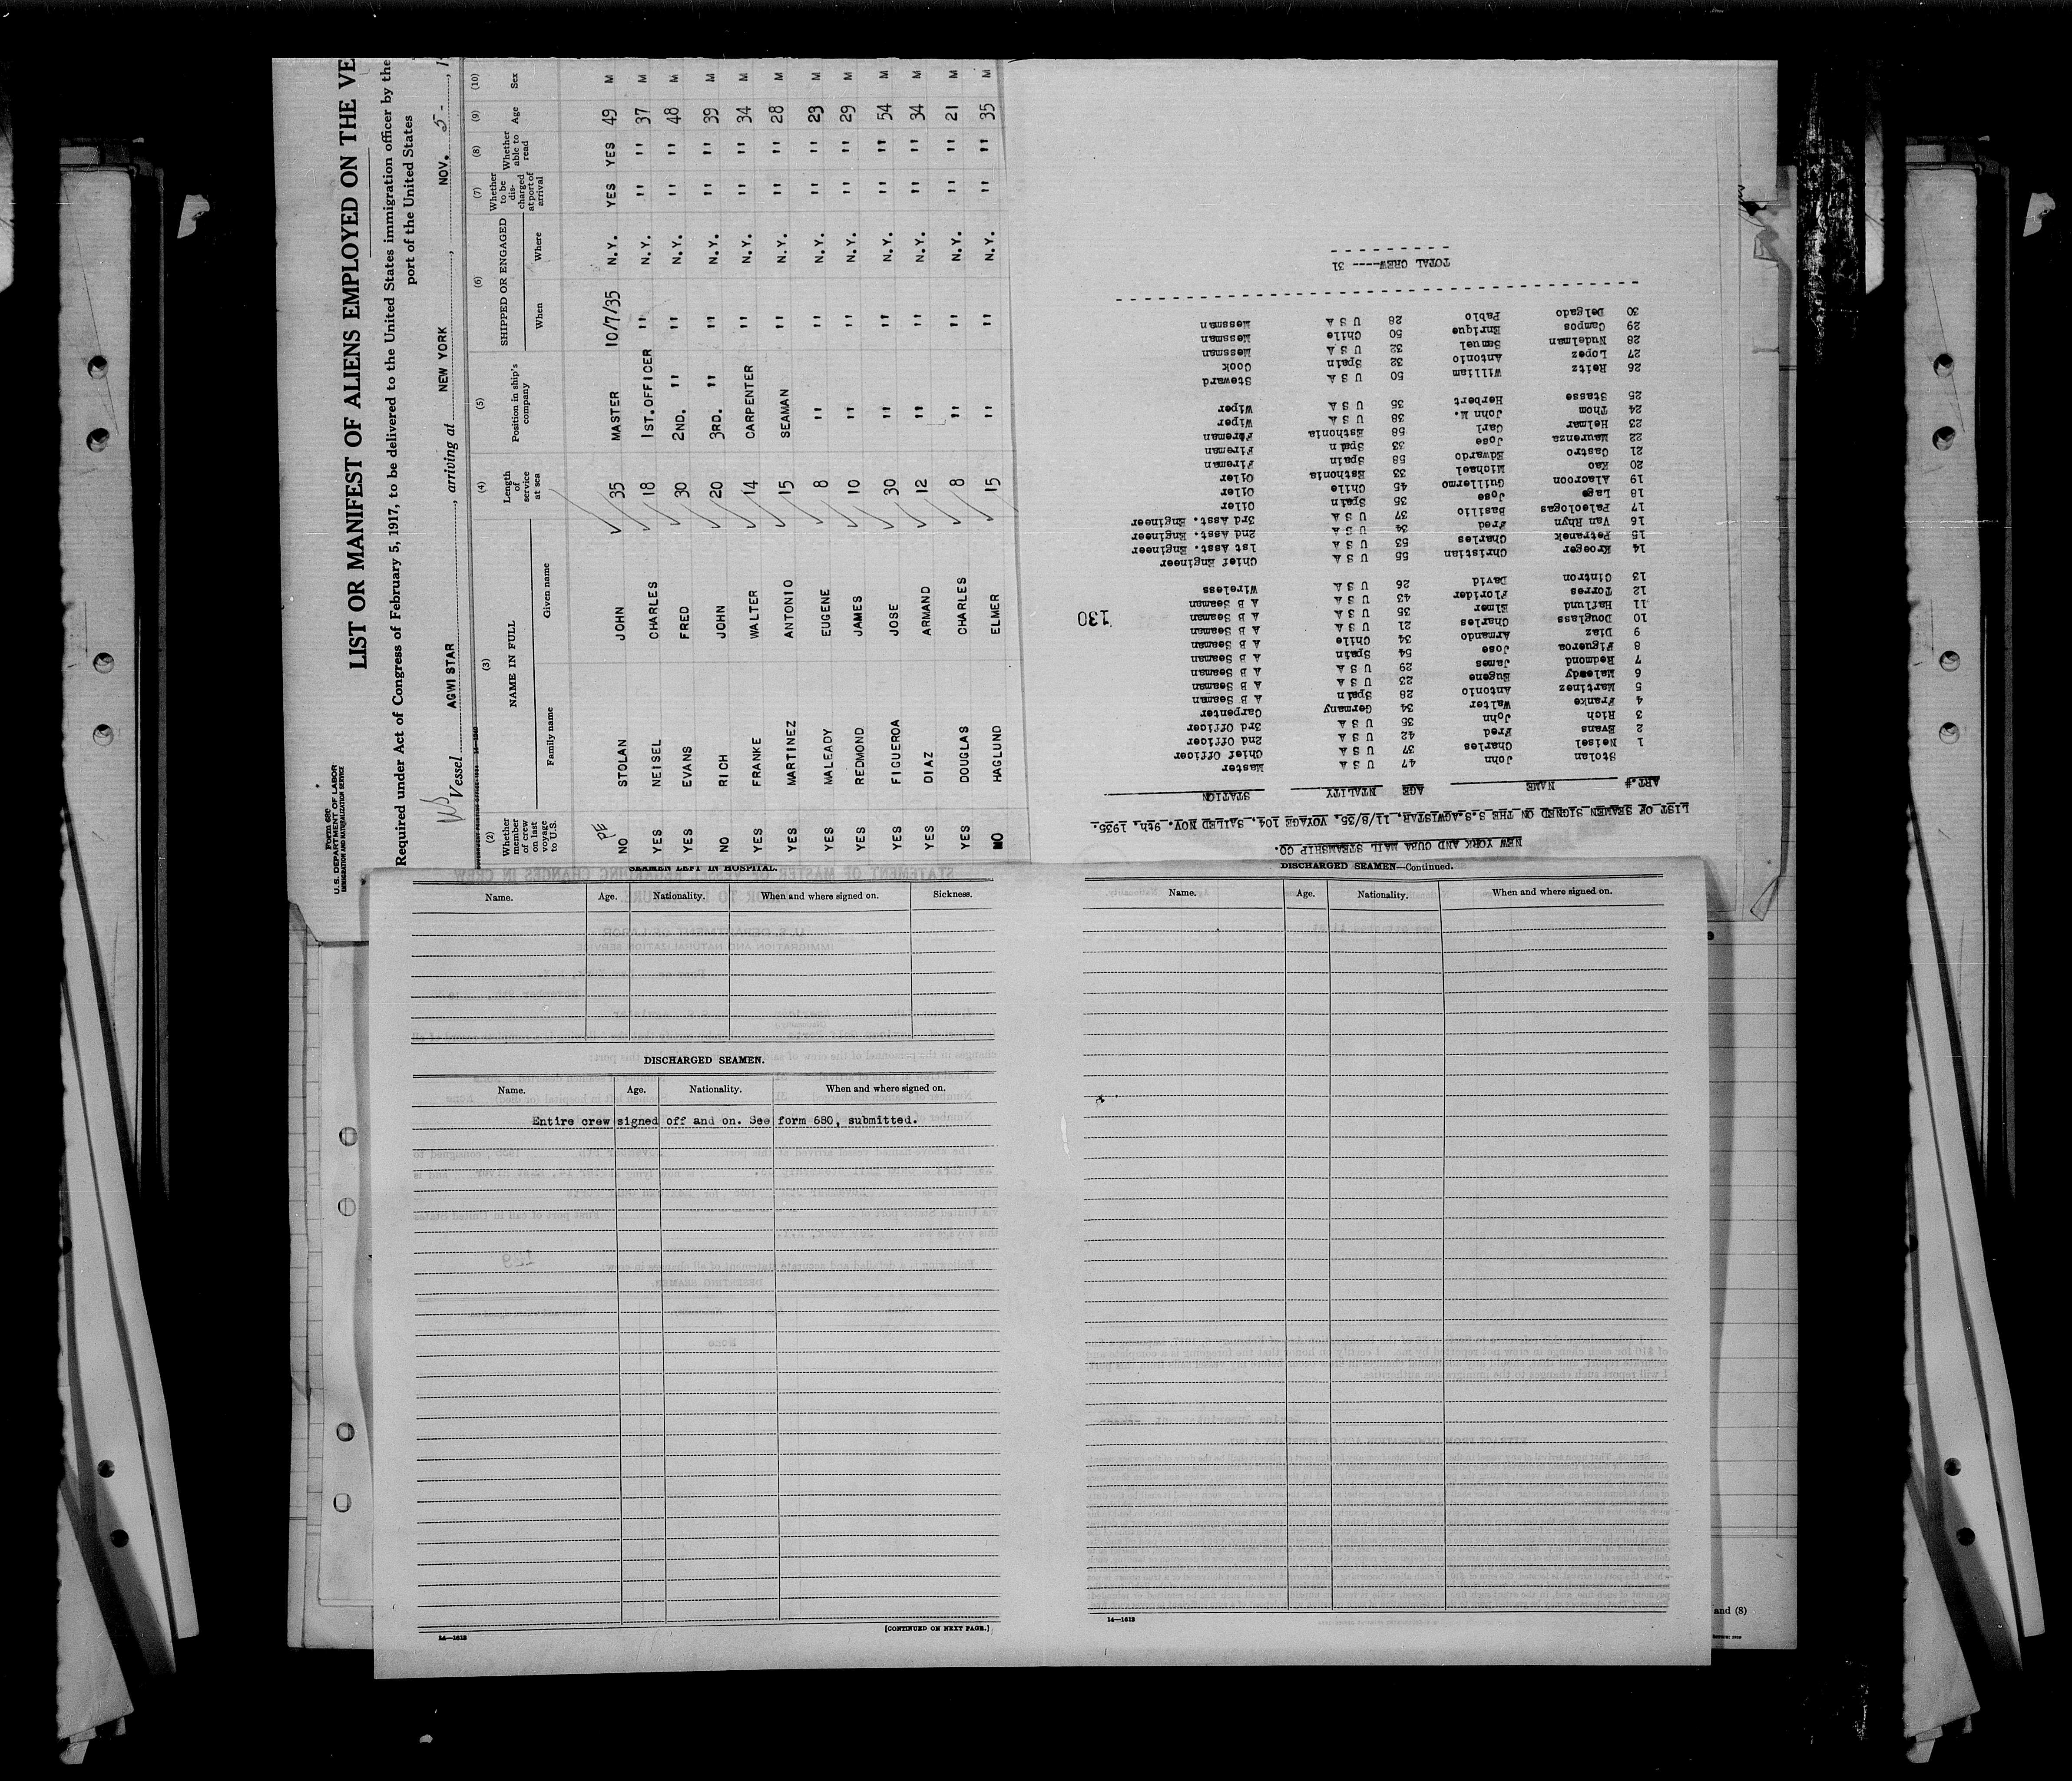 Form 680
U.S. DEPARTMENT OF LABOR
IMMIGRATION AND NATURALIZATION SERVICE
LIST OR MANIFEST OF ALIENS EMPLOYED ON THE VE
Required under Act of Congress of February 5, 1917, to be delivered to the United States immigration officer by the
port of the United States
Vessel AGWISTAR, arriving at NEW YORK, NOV. 5-, 1
(2) (3) (4) (5) (6) (7) (8) (9) (10)
Whether member of crew on last voyage to U.S. NAME IN FULL Family name Given name Length of service at sea Position in ship's company SHIPPED OR ENGAGED When Where Whether to be discharged at port of arrival Whether able to read Age Sex
PE
NO STOLAN JOHN 35 MASTER 10/7/35 N.Y. YES YES 49 M
YES NEISEL CHARLES 18 1ST.OFFICER " N.Y. " " 37 M
YES EVANS FRED 30 2ND. " " N.Y. " " 48 M
NO RICH JOHN 20 3RD. " " N.Y. " " 39 M
YES FRANKE WALTER 14 CARPENTER " N.Y. " " 34 M
YES MARTINEZ ANTONIO 15 SEAMAN " N.Y. " " 28 M
YES MALEADY EUGENE 8 " " N.Y. " " 23 M
YES REDMOND JAMES 10 " " N.Y. " " 29 M
YES FIGUEROA JOSE 30 " " N.Y. " " 54 M
YES DIAZ ARMAND 12 " " N.Y. " " 34 M
YES DOUGLAS CHARLES 8 " " N.Y. " " 21 M
NO HAGLUND ELMER 15 " " N.Y. " " 35 M
NEW YORK AND CUBA MAIL STEAMSHIP CO.
LIST OF SEAMEN SIGNED ON THE S.S.AGWISTAR, 11/8/35. VOYAGE 104. SAILED NOV. 9th, 1935.
ART.# NAME AGE NTALITY STATION
Stolan John 47 U S A Master
1 Neisel Charles 37 U S A Chief Officer
2 Evans Fred 42 U S A 2nd Officer
3 Rich John 35 U S A 3rd Officer
4 Franke Walter 34 Germany Carpenter
5 Martinez Antonio 28 Spain A B Seaman
6 Maleady Eugene 23 U S A A B Seaman
7 Redmond James 29 U S A A B Seaman
8 Figueroa Jose 54 Spain A B Seaman
9 Diaz Armando 34 Chile A B Seaman
10 Douglass Charles 21 U S A A B Seaman
11 Haflund Elmer 35 U S A A B Seaman
12 Torres Florider 43 U S A A B Seaman
13 Cintron David 26 U S A Wireless
14 Kroeger Christian 55 U S A Chief Engineer
15 Petranek Charles 53 U S A 1st Asst. Engineer
16 Van Rhyn Fred 34 U S A 2nd Asst. Engineer
17 Paleologas Basilio 37 U S A 3rd Asst. Engineer
18 Lage Jose 35 Spain Oiler
19 Alacroon Guillermo 45 Chile Oiler
20 Kao Michael 33 Esthonia Oiler
21 Castro Edwardo 58 Spain Fireman
22 Maurenza Jose 33 Spain Fireman
23 Helmar Carl 58 Esthonia Fireman
24 Thom John M. 38 U S A Wiper
25 Stasse Herbert 35 U S A Wiper
26 Reitz William 50 U S A Steward
27 Lopez Antonio 32 Spain Cook
28 Nudelman Samuel 32 U S A Messman
29 Campos Enrique 50 Chile Messman
30 Delgado Pablo 28 U S A Messman
TOTAL CREW---- 31
130
SEAMEN LEFT IN HOSPITAL.
Name. Age. Nationality. When and where signed on. Sickness.
DISCHARGED SEAMEN.
Name. Age. Nationality. When and where signed on.
Entire crew signed off and on. See form 680, submitted.
14—1613
[CONTINUED ON NEXT PAGE.]
DISCHARGED SEAMEN—Continued.
Name. Age. Nationality. When and where signed on.
14—1613
and (8)